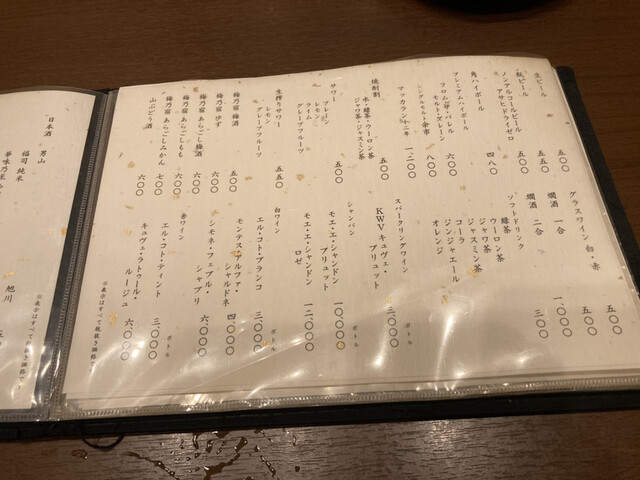 生ビール 五〇〇
瓶ビール 五五〇
ノンアルコールビール
アサヒドライゼロ 五五〇
角ハイボール 四八〇
プレミアムハイボール
フロム・ザ・バレル 六〇〇
モルト&グレーン 八〇〇
シングルモルト余市
マッカラン十二年 一、二〇〇
焼酎割
水・緑茶・ウーロン茶
ジャワ茶・ジャスミン茶 五〇〇
サワー
プレーン
レモン
ライム
グレープフルーツ 五〇〇
生搾りサワー
レモン
グレープフルーツ 五五〇
梅乃宿 梅酒 五〇〇
梅乃宿 ゆず 六〇〇
梅乃宿 あらごし梅酒 六〇〇
梅乃宿 あらごしもも 六〇〇
梅乃宿 あらごしみかん 七〇〇
山ぶどう酒 六〇〇
グラスワイン 白・赤 五〇〇
燗酒 一合 五〇〇
燗酒 二合 一、〇〇〇
ソフトドリンク 三〇〇
緑茶
ウーロン茶
ジャワ茶
ジャスミン茶
コーラ
ジンジャエール
オレンジ
スパークリングワイン ボトル
KWVキュヴェ・
ブリュット 三、〇〇〇
シャンパン ボトル
モエ・エ・シャンドン
ブリュット 一〇、〇〇〇
モエ・エ・シャンドン
ロゼ 一二、〇〇〇
白ワイン ボトル
エル・コト・ブランコ 三、〇〇〇
モンテス・アルファ・
シャルドネ 四、〇〇〇
シモネ・フェブル・
シャブリ 六、〇〇〇
赤ワイン ボトル
エル・コト・ティント 三、〇〇〇
キュヴェ・ラトゥール・
ルージュ 六、〇〇〇
※表示はすべて税抜き価格です。
日本酒
男山
旭川
福司 純米
※表示はすべて税抜き価格です。